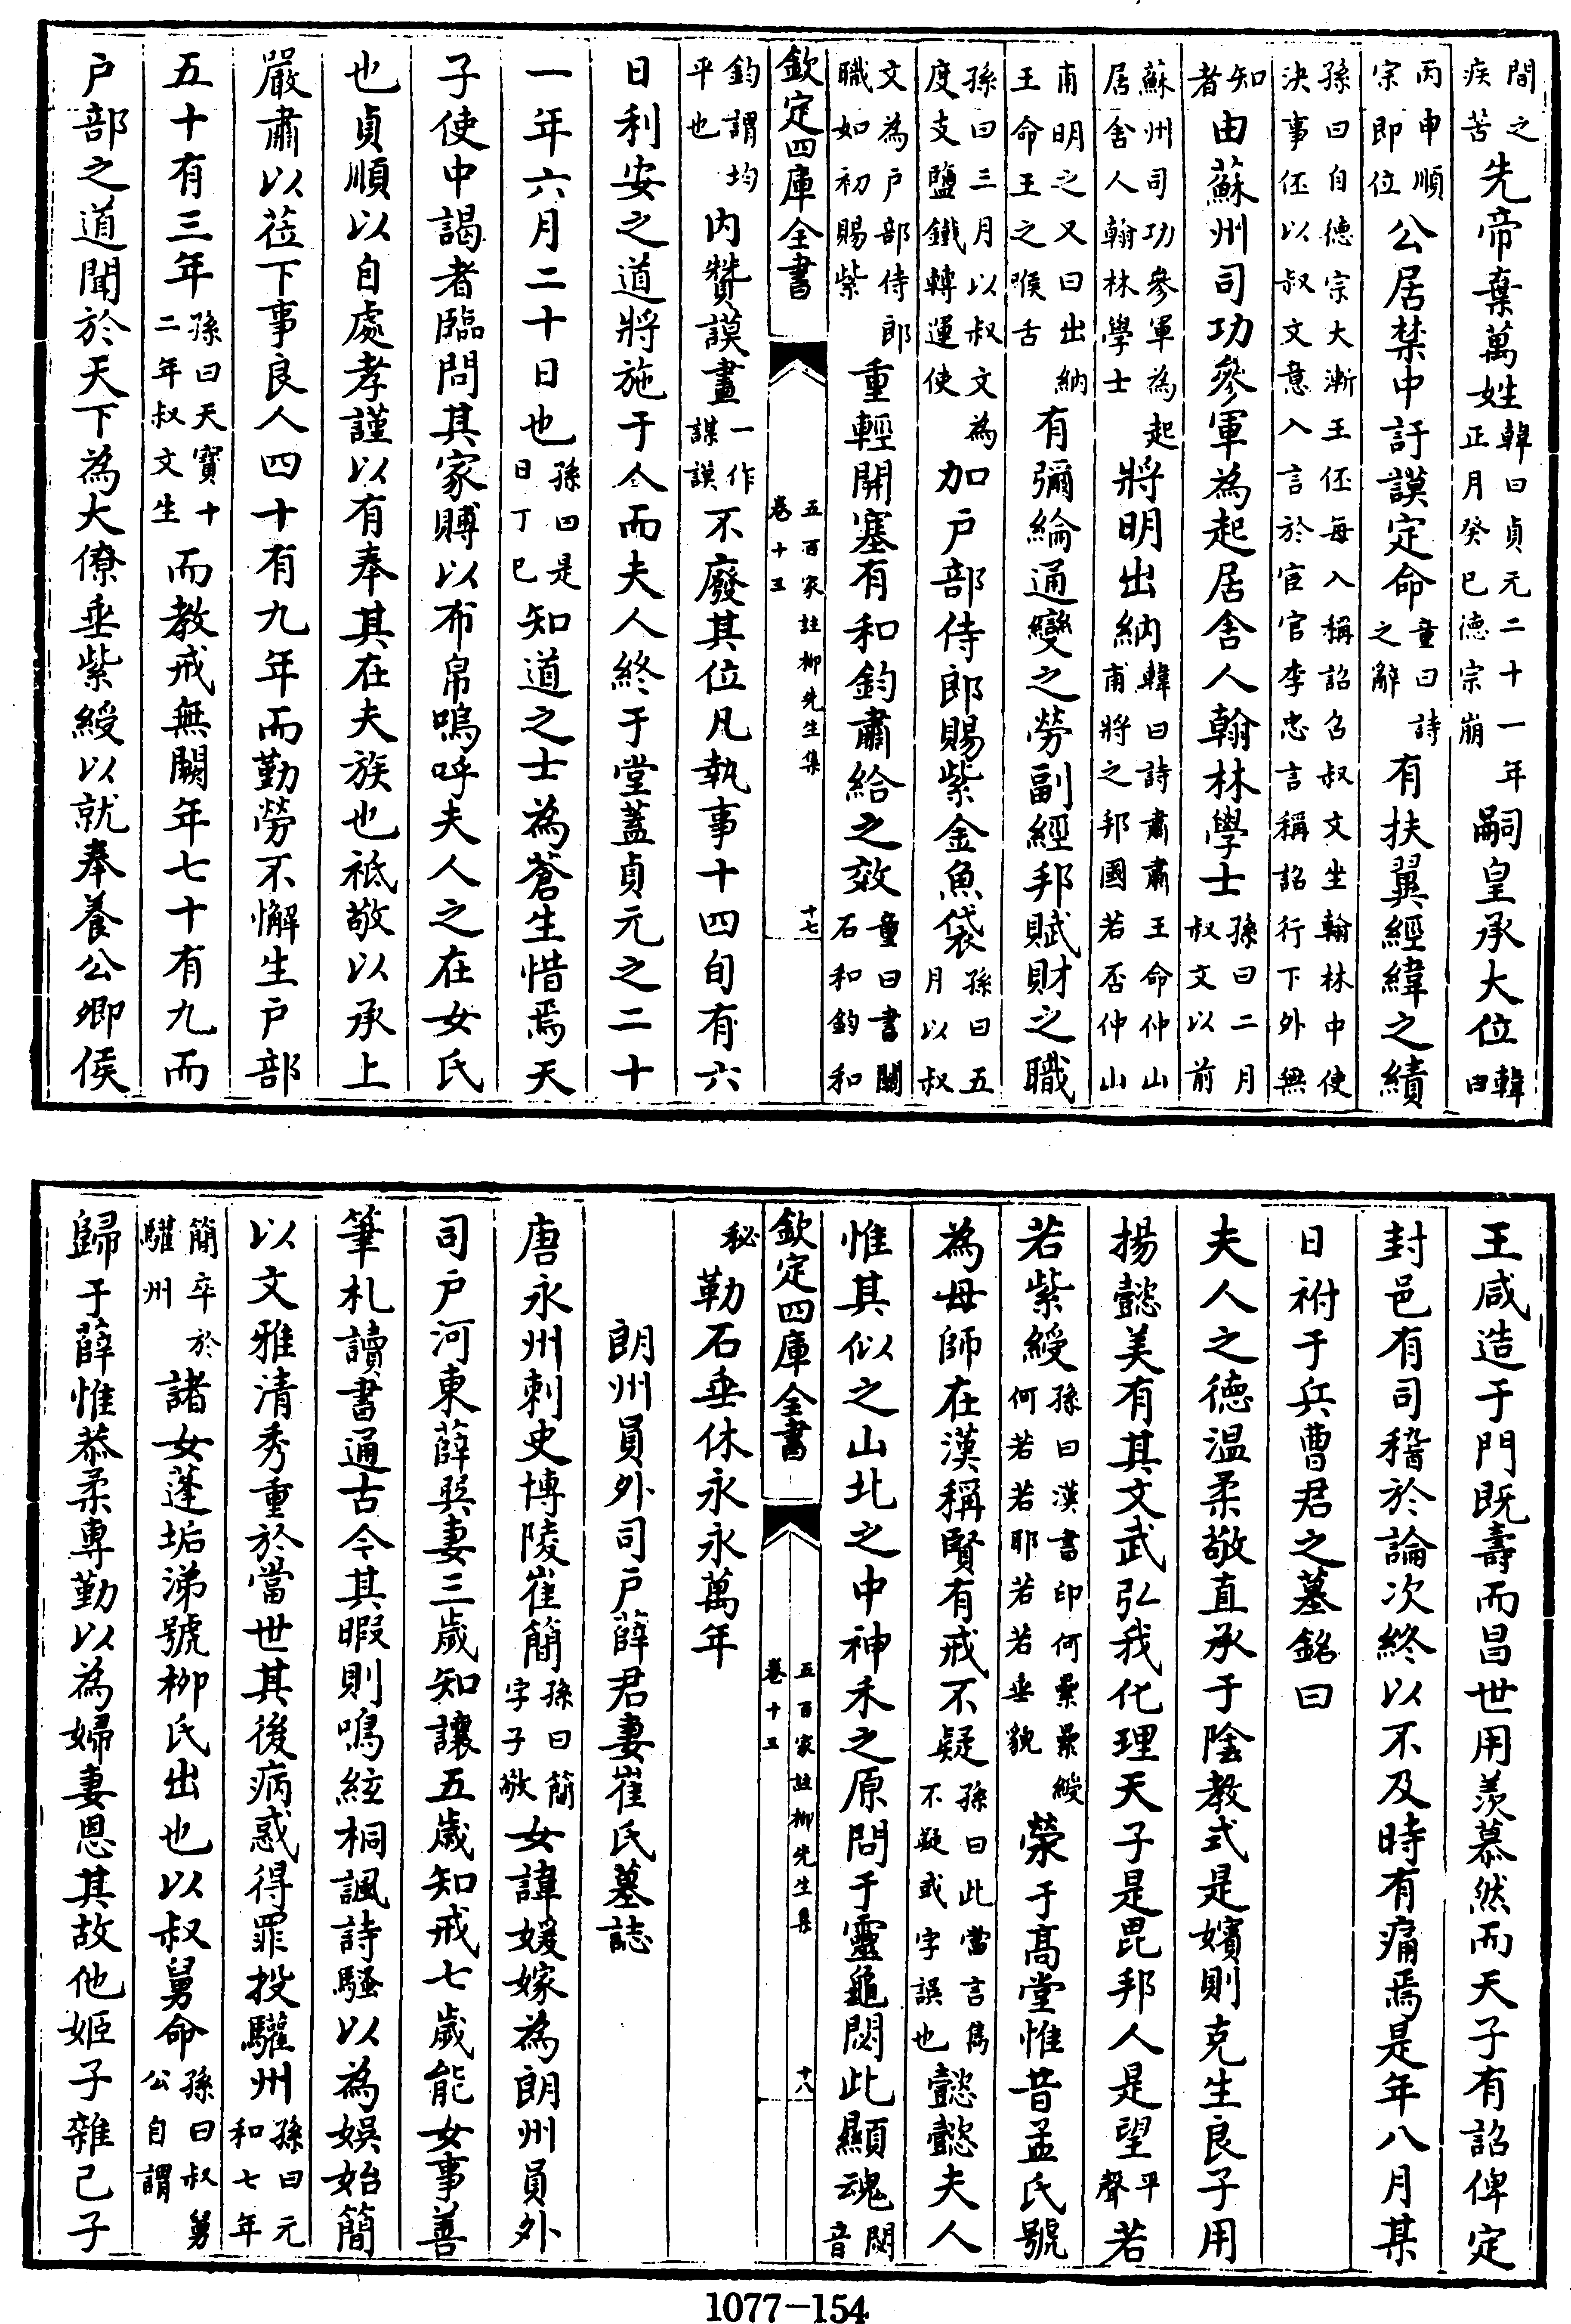 間之疾苦先帝棄萬姓韓曰貞元二十一年正月癸巳德宗崩嗣皇承大位韓曰
丙申順宗即位公居禁中訏謨定命童曰詩之辭有扶翼經緯之績
孫曰自德宗大漸王伾每入稱詔召叔文坐翰林中使決事伾以叔文意入言於宦官李忠言稱詔行下外無
知者由蘇州司功參軍為起居舍人翰林學士孫曰二月叔文以前
蘇州司功參軍為起居舍人翰林學士將明出納韓曰詩肅肅王命仲山甫將之邦國若否仲山
甫明之又曰出納王命王之喉舌有彌綸通變之勞副經邦賦財之職
孫曰三月以叔文為度支鹽鐵轉運使加戶部侍郎賜紫金魚袋孫曰五月以叔
文為戶部侍郎職如初賜紫重輕開塞有和鈞肅給之效童曰書關石和鈞和
欽定四庫全書 五百家註柳先生集 卷十三 十七
鈞謂均平也內贊謨畫一作謀謨不廢其位凡執事十四旬有六
日利安之道將施于人而夫人終于堂蓋貞元之二十
一年六月二十日也孫曰是日丁巳知道之士為蒼生惜焉天
子使中謁者臨問其家賻以布帛嗚呼夫人之在女氏
也貞順以自處孝謹以有奉其在夫族也祗敬以承上
嚴肅以莅下事良人四十有九年而勤勞不懈生戶部
五十有三年孫曰天寶十二年叔文生而教戒無闕年七十有九而
戶部之道聞於天下為大僚垂紫綬以就奉養公卿侯
王咸造于門既壽而昌世用羨慕然而天子有詔俾定
封邑有司稽於論次終以不及時有痛焉是年八月某
日祔于兵曹君之墓銘曰
夫人之德溫柔敬直承于陰教式是嬪則克生良子用
揚懿美有其文武弘我化理天子是毘邦人是望平聲若
若紫綬孫曰漢書印何纍纍綬何若若耶若若垂貌榮于高堂惟昔孟氏號
為母師在漢稱賢有戒不疑孫曰此當言雋不疑或字誤也懿懿夫人
惟其似之山北之中神禾之原問于靈龜閟此顯魂閟音
欽定四庫全書 五百家註柳先生集 卷十三 十八
秘勒石垂休永永萬年
朗州員外司戶薛君妻崔氏墓誌
唐永州刺史博陵崔簡孫曰簡字子敬女諱媛嫁為朗州員外
司戶河東薛巽妻三歲知讓五歲知戒七歲能女事善
筆札讀書通古今其暇則鳴絃桐諷詩騷以為娛始簡
以文雅清秀重於當世其後病惑得罪投驩州孫曰元和七年
簡卒於驩州諸女蓬垢涕號柳氏出也以叔舅命孫曰叔舅公自謂
歸于薛惟恭柔專勤以為婦妻恩其故他姬子雜己子
1077-154